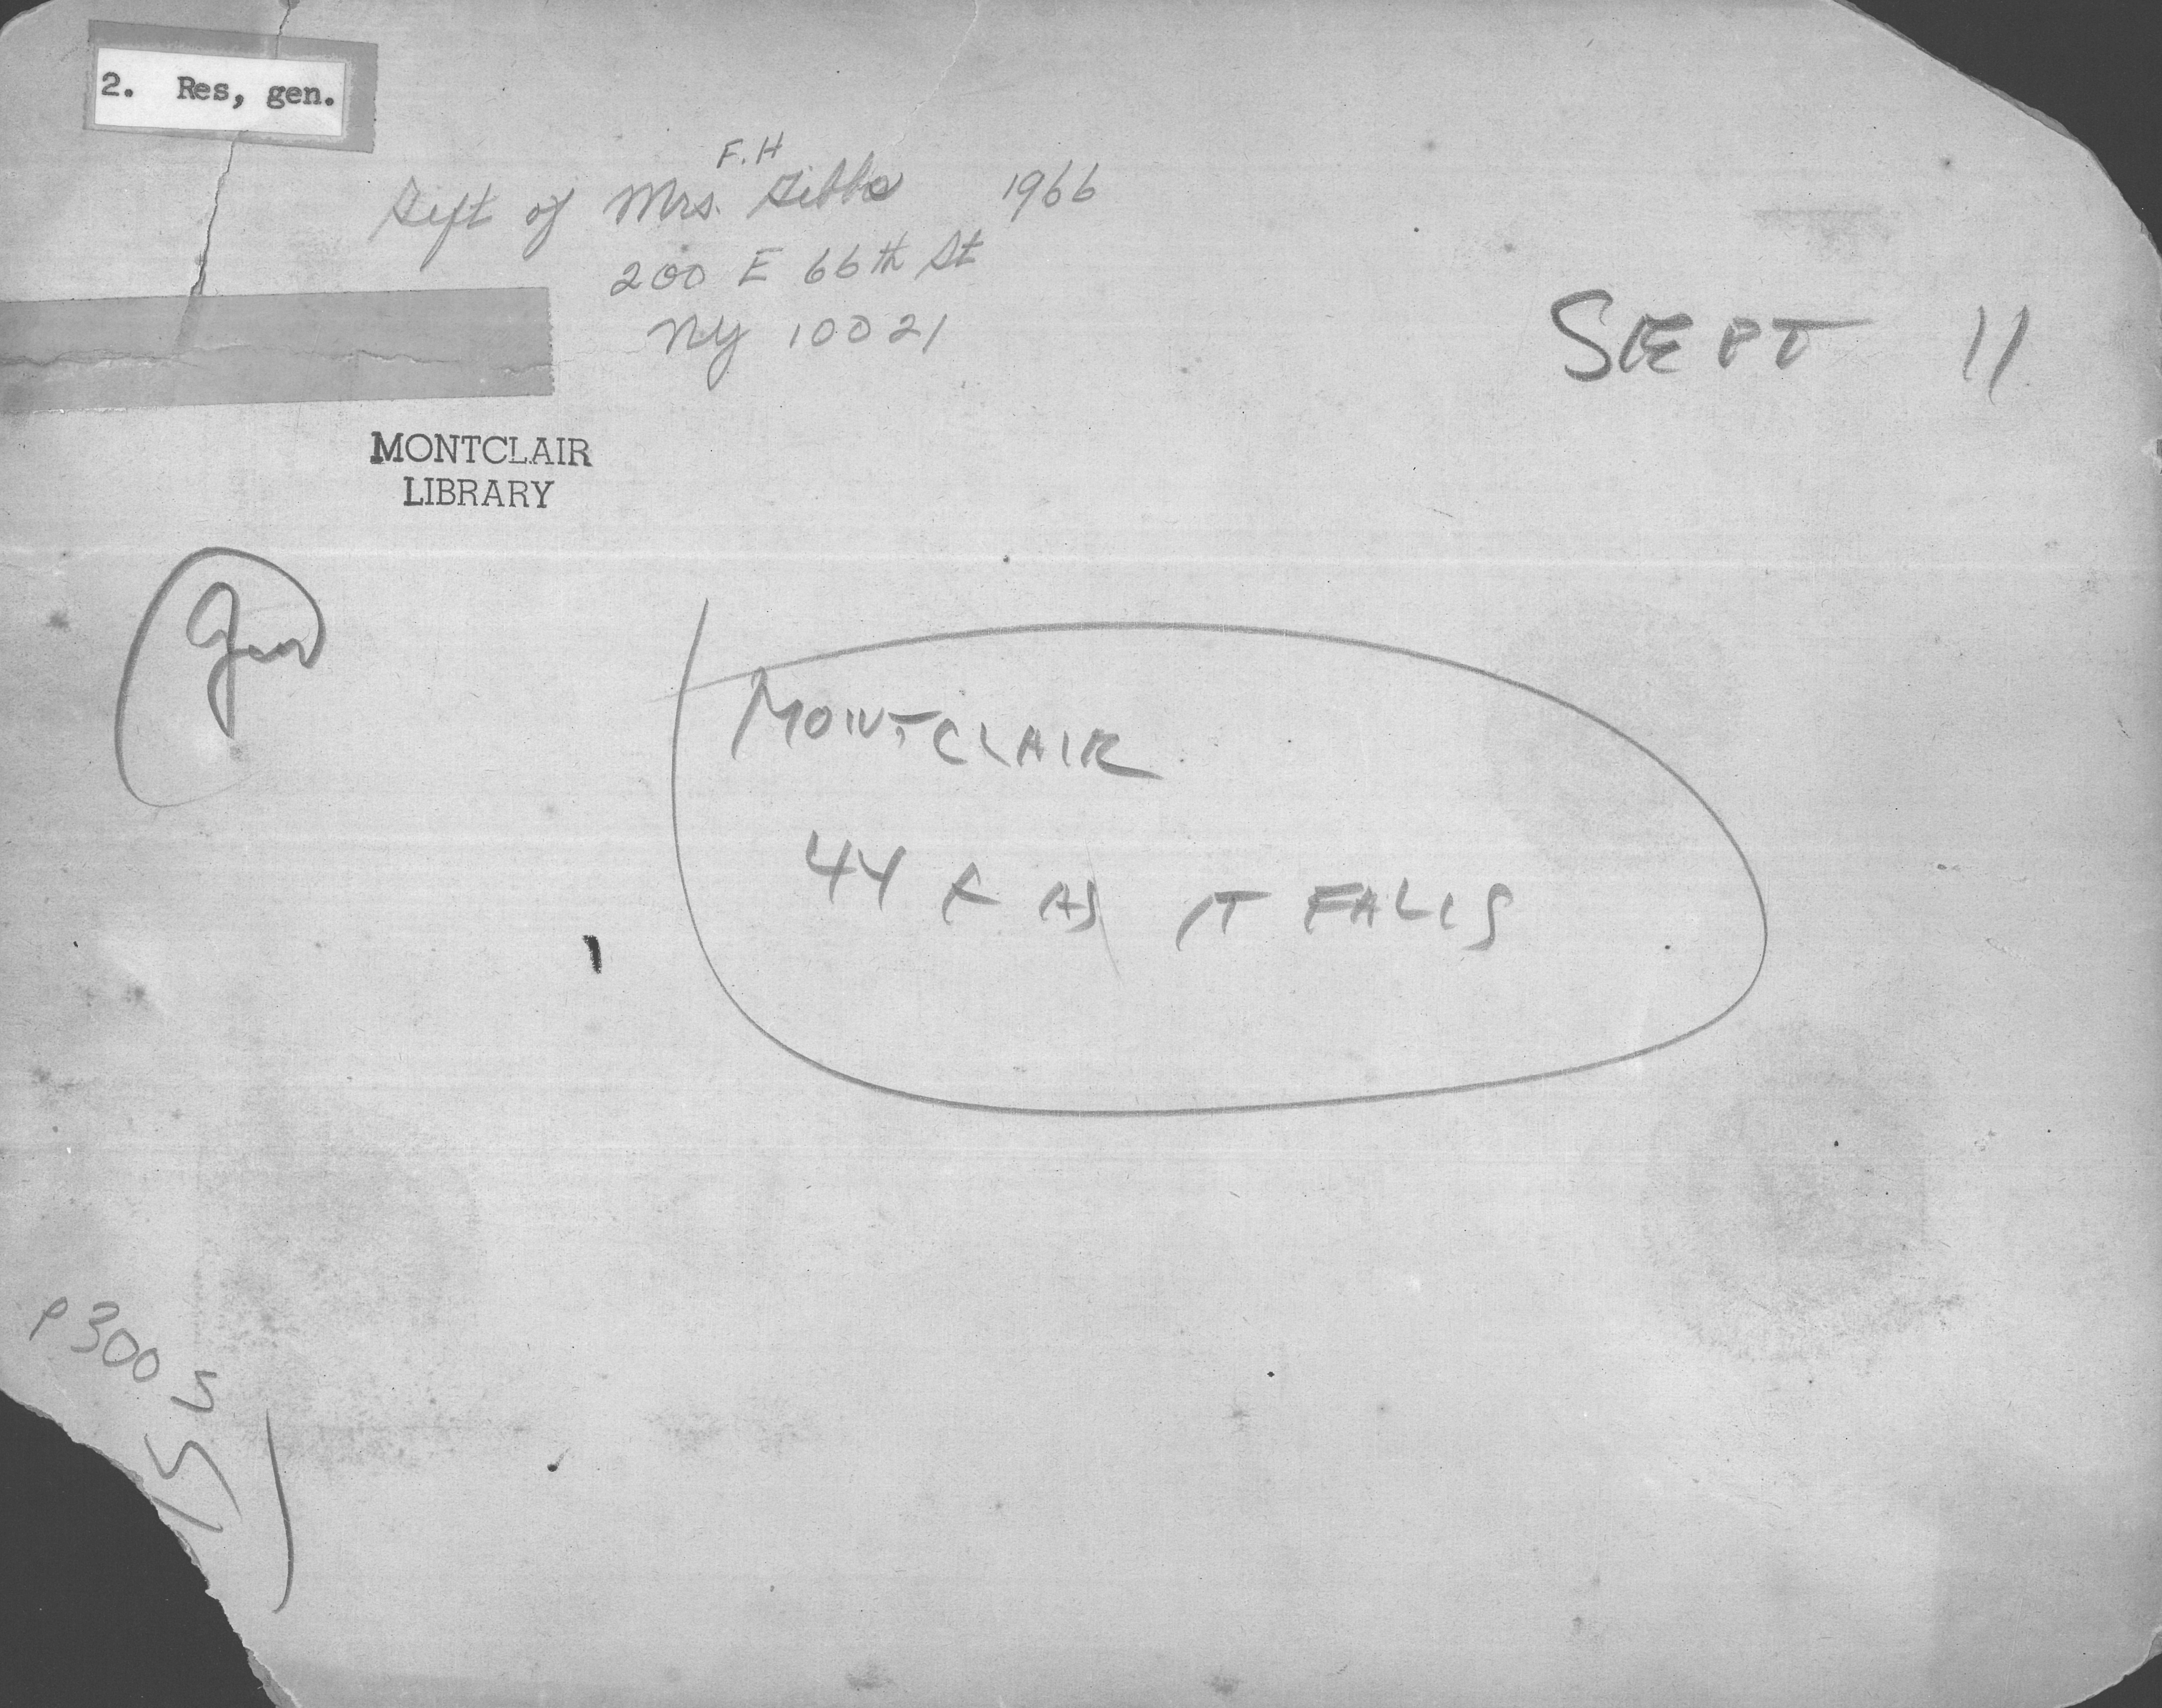 2. Res, gen.
F.H
Gift of Mrs. Gibbs 1966
200 E 66th St
NY 10021
SEPT 11
MONTCLAIR
LIBRARY
MONTCLAIR
44 X AS IT FALLS
P300